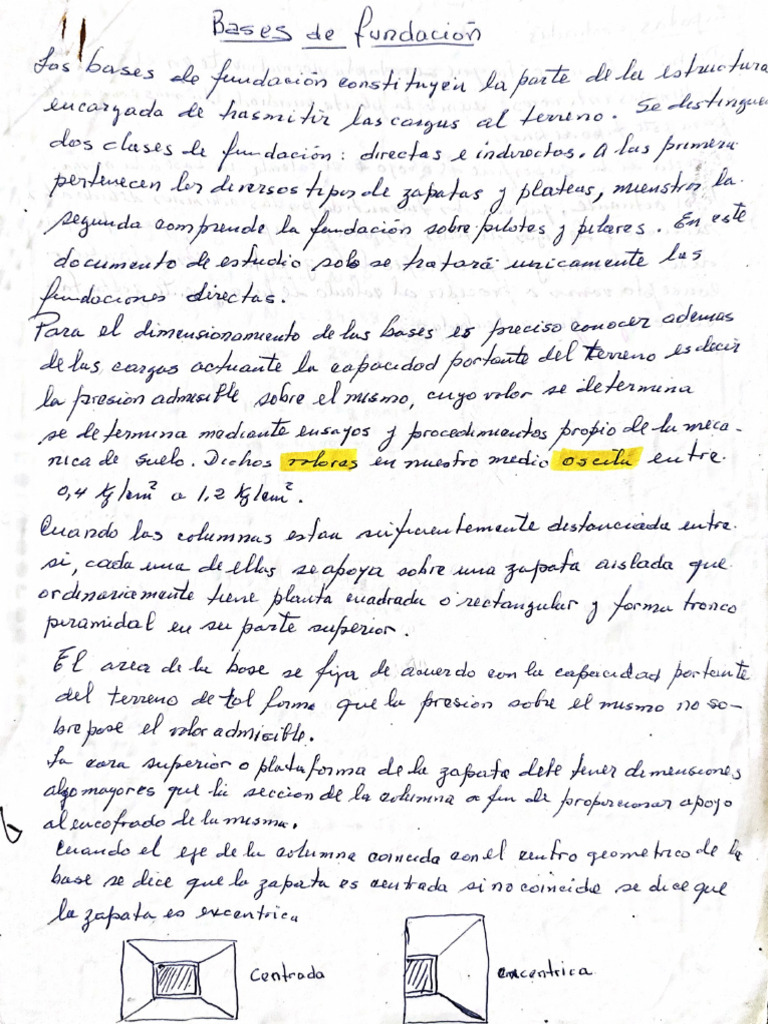 Bases de fundación
Las bases de fundación constituyen la parte de la estructura
encargada de trasmitir las cargas al terreno. Se distinguen
dos clases de fundación: directas e indirectas. A las primera
pertenecen los diversos tipos de zapatas y plateas, mienstras la
segunda comprende la fundación sobre pilotes y pilares. En este
documento de estudio solo se tratará unicamente las
fundaciones directas.
Para el dimensionamiento de las bases es preciso conocer ademas
de las cargas actuante la capacidad portante del terreno es decir
la presion admisible sobre el mismo, cuyo valor se determina
se determina mediante ensayos y procedimientos propio de la meca-
nica de suelo. Dichos valores en nuestro medio oscila entre
0,4 Kg/cm² a 1,2 Kg/cm².
Cuando las columnas estan suficientemente distanciada entre
si, cada una de ellas se apoya sobre una zapata aislada que
ordinariamente tiene planta cuadrada o rectangular y forma tronco
piramidal en su parte superior.
El area de la base se fija de acuerdo con la capacidad portante
del terreno de tal forma que la presion sobre el mismo no so-
brepase el valor admisible.
La cara superior o plataforma de la zapata debe tener dimensiones
algo mayores que la seccion de la columna a fin de proporcionar apoyo
al encofrado de la misma.
Cuando el eje de la columna coincida con el centro geometrico de la
base se dice que la zapata es centrada si no coincide se dice que
la zapata es excentrica
centrada
excentrica